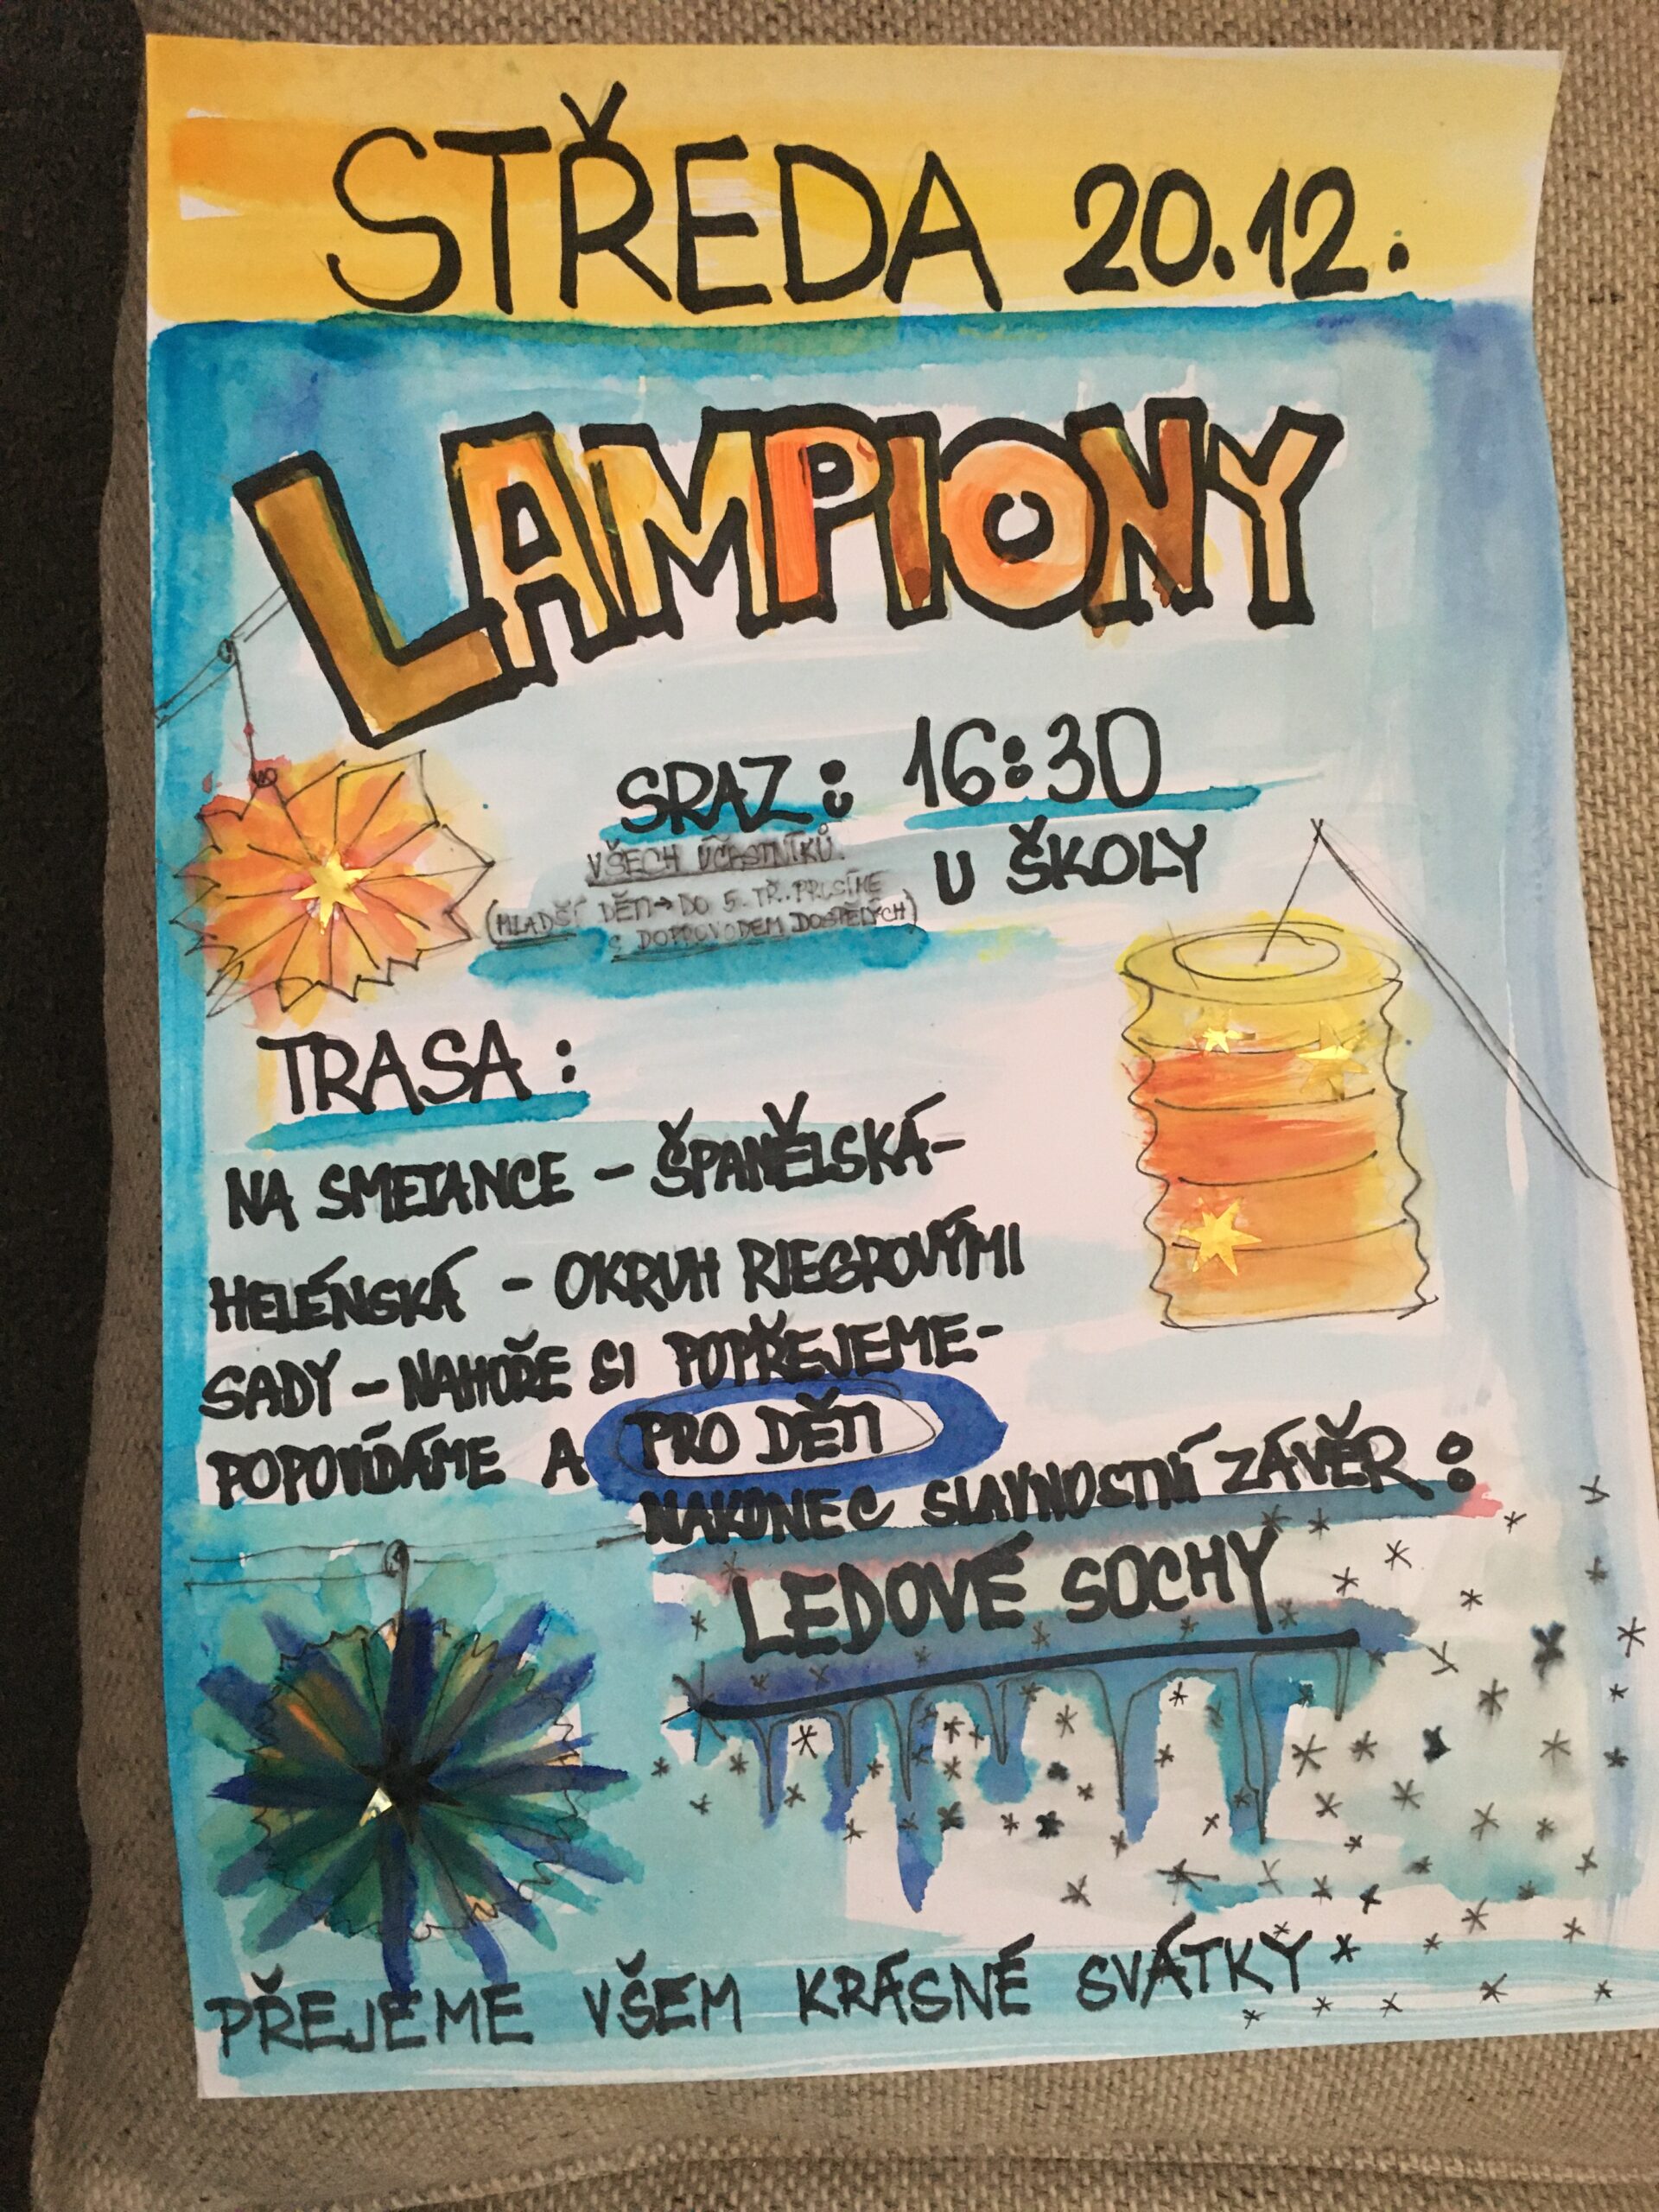 STŘEDA 20.12.
LAMPIONY
SRAZ: 16:30
VŠECH ÚČASTNÍKŮ
U ŠKOLY
(MLADŠÍ DĚTI→DO 5. TŘ. PROSÍME
S DOPROVODEM DOSPĚLÝCH)
TRASA:
NA SMETANCE - ŠPANĚLSKÁ-
HELÉNSKÁ - OKRUH RIEGROVÝMI
SADY - NAHOŘE SI POPŘEJEME-
POPOVÍDÁME A PRO DĚTI
NAKONEC SLAVNOSTNÍ ZÁVĚR:
LEDOVÉ SOCHY
PŘEJEME VŠEM KRÁSNÉ SVÁTKY